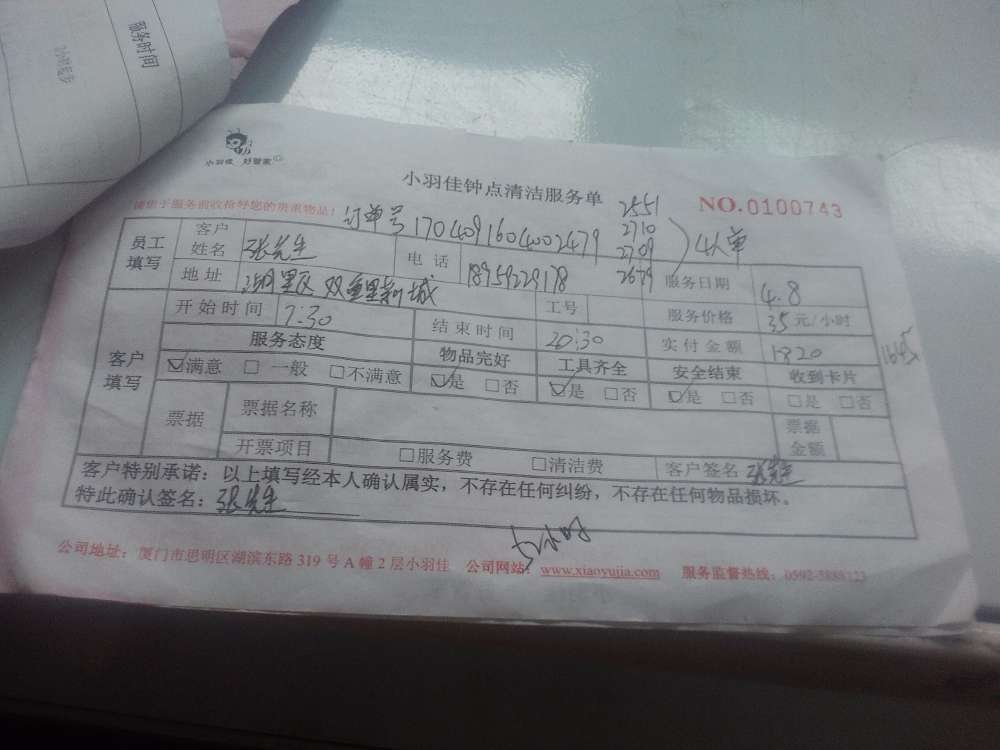 服务时间
小羽佳 好管家
小羽佳钟点清洁服务单
NO.0100743
请您于服务前收捡好您的贵重物品！
订单号 1704091604002479
2551
2710
2709
2679
4人单
员工填写 客户姓名 张先生 电话 18959229178 服务日期 4.8
地址 湖里区 双 新城 工号 服务价格 35 元/小时
客户填写 开始时间 7:30 结束时间 20:30 实付金额 1820
服务态度 物品完好 工具齐全 安全结束 收到卡片
☑满意 □一般 □不满意 ☑是 □否 ☑是 □否 ☑是 □否 □是 □否
票据 票据名称 票据金额
开票项目 □服务费 □清洁费 客户签名 张先生
客户特别承诺：以上填写经本人确认属实，不存在任何纠纷，不存在任何物品损坏。
特此确认签名：张先生
公司地址：厦门市思明区湖滨东路 319 号 A 幢 2 层小羽佳 公司网站：www.xiaoyujia.com 服务监督热线：0592-5888123